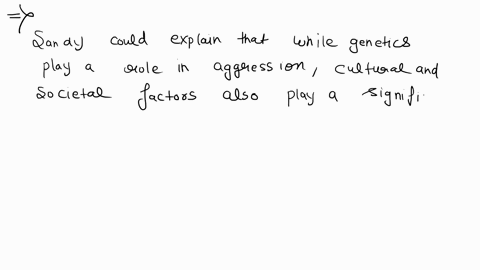 => Sandy could explain that while genetics
play a role in aggression, cultural and
societal factors also play a signifi